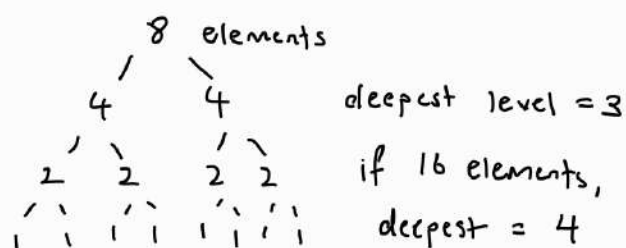 8 elements
4 4
deepest level = 3
2 2 2 2
if 16 elements,
1 1 1 1 1 1 1 1
deepest = 4